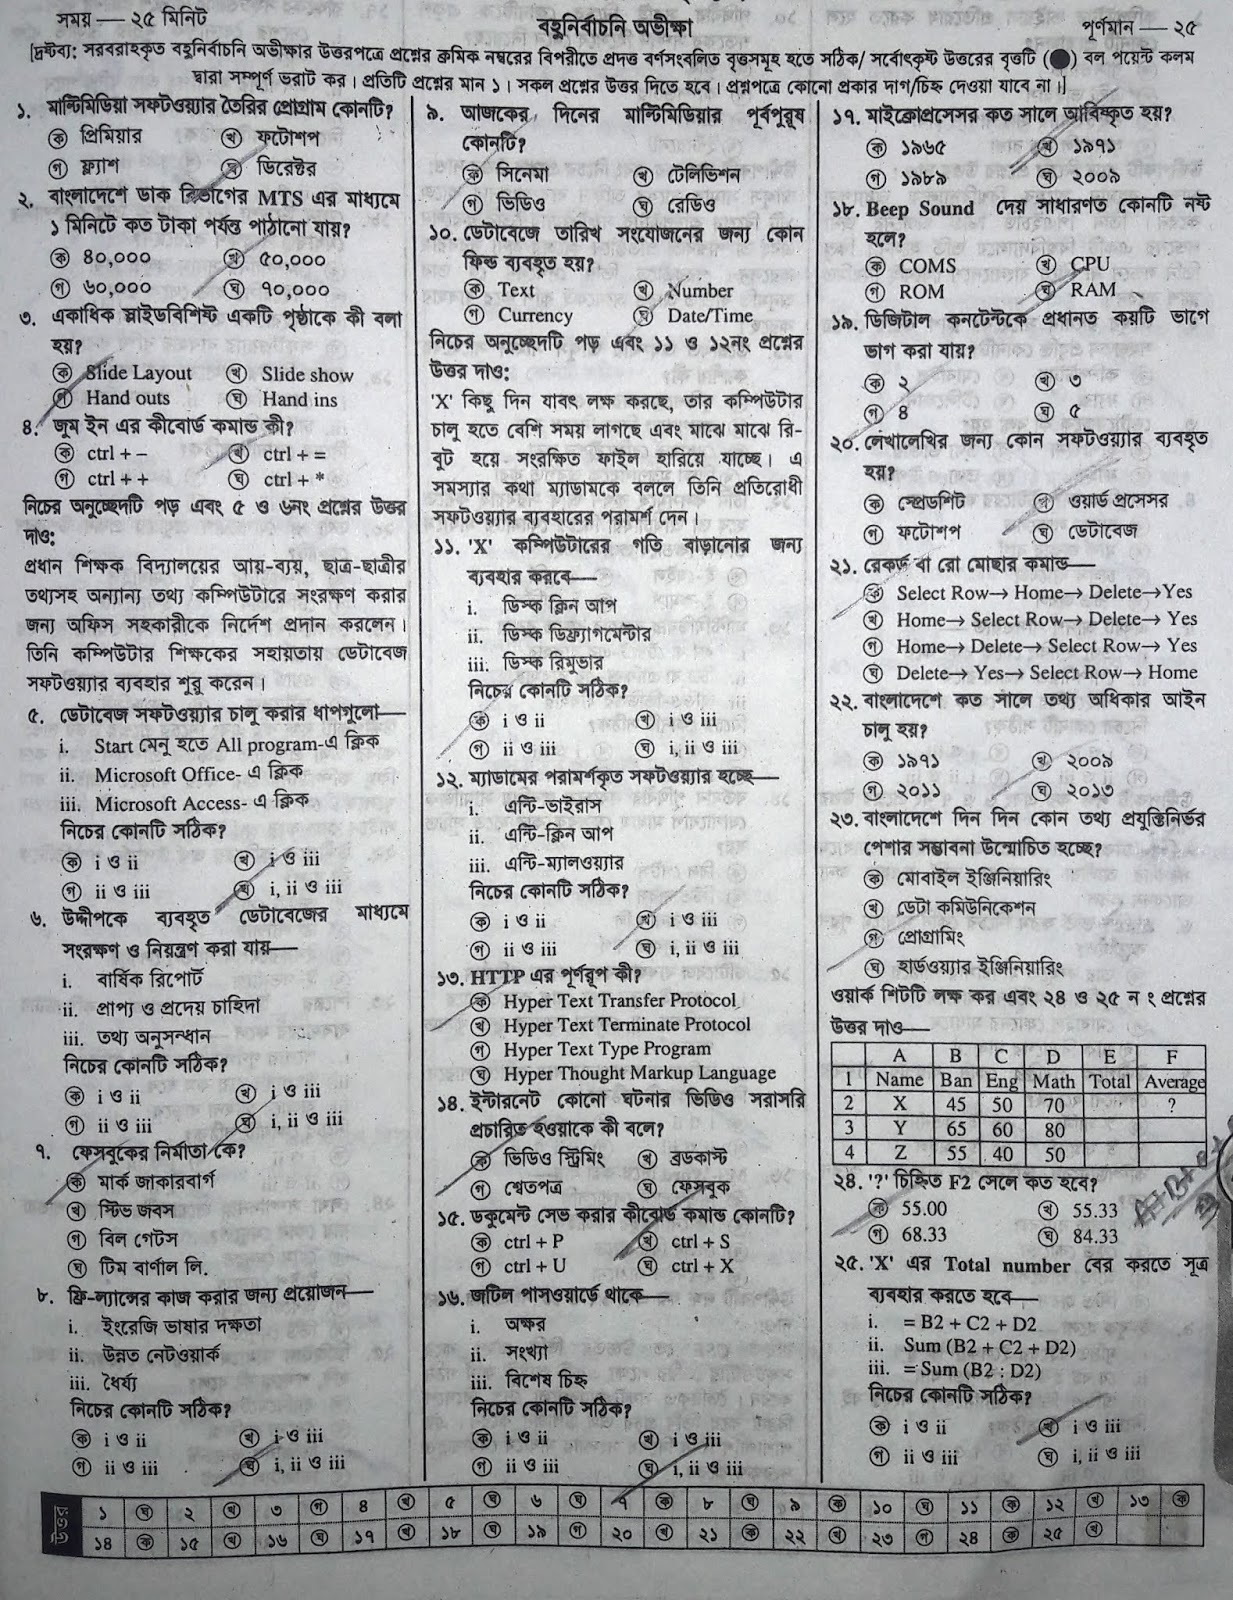 সময় — ২৫ মিনিট
বহুনির্বাচনি অভীক্ষা
পূর্ণমান — ২৫
[দ্রষ্টব্য: সরবরাহকৃত বহুনির্বাচনি অভীক্ষার উত্তরপত্রে প্রশ্নের ক্রমিক নম্বরের বিপরীতে প্রদত্ত বর্ণসংবলিত বৃত্তসমূহ হতে সঠিক/ সর্বোৎকৃষ্ট উত্তরের বৃত্তটি (●) বল পয়েন্ট কলম
দ্বারা সম্পূর্ণ ভরাট কর। প্রতিটি প্রশ্নের মান ১। সকল প্রশ্নের উত্তর দিতে হবে। প্রশ্নপত্রে কোনো প্রকার দাগ/চিহ্ন দেওয়া যাবে না।]
১. মাল্টিমিডিয়া সফটওয়্যার তৈরির প্রোগ্রাম কোনটি?
ক প্রিমিয়ার খ ফটোশপ
গ ফ্ল্যাশ ঘ ডিরেক্টর
২. বাংলাদেশে ডাক বিভাগের MTS এর মাধ্যমে
১ মিনিটে কত টাকা পর্যন্ত পাঠানো যায়?
ক ৪০,০০০ খ ৫০,০০০
গ ৬০,০০০ ঘ ৭০,০০০
৩. একাধিক স্লাইডবিশিষ্ট একটি পৃষ্ঠাকে কী বলা
হয়?
ক Slide Layout খ Slide show
গ Hand outs ঘ Hand ins
৪. জুম ইন এর কীবোর্ড কমান্ড কী?
ক ctrl + – খ ctrl + =
গ ctrl + + ঘ ctrl + *
নিচের অনুচ্ছেদটি পড় এবং ৫ ও ৬নং প্রশ্নের উত্তর
দাও:
প্রধান শিক্ষক বিদ্যালয়ের আয়-ব্যয়, ছাত্র-ছাত্রীর
তথ্যসহ অন্যান্য তথ্য কম্পিউটারে সংরক্ষণ করার
জন্য অফিস সহকারীকে নির্দেশ প্রদান করলেন।
তিনি কম্পিউটার শিক্ষকের সহায়তায় ডেটাবেজ
সফটওয়্যার ব্যবহার শুরু করেন।
৫. ডেটাবেজ সফটওয়্যার চালু করার ধাপগুলো—
i. Start মেনু হতে All program-এ ক্লিক
ii. Microsoft Office- এ ক্লিক
iii. Microsoft Access- এ ক্লিক
নিচের কোনটি সঠিক?
ক i ও ii খ i ও iii
গ ii ও iii ঘ i, ii ও iii
৬. উদ্দীপকে ব্যবহৃত ডেটাবেজের মাধ্যমে
সংরক্ষণ ও নিয়ন্ত্রণ করা যায়—
i. বার্ষিক রিপোর্ট
ii. প্রাপ্য ও প্রদেয় চাহিদা
iii. তথ্য অনুসন্ধান
নিচের কোনটি সঠিক?
ক i ও ii খ i ও iii
গ ii ও iii ঘ i, ii ও iii
৭. ফেসবুকের নির্মাতা কে?
ক মার্ক জাকারবার্গ
খ স্টিভ জবস
গ বিল গেটস
ঘ টিম বার্ণাল লি.
৮. ফ্রি-ল্যান্সের কাজ করার জন্য প্রয়োজন—
i. ইংরেজি ভাষার দক্ষতা
ii. উন্নত নেটওয়ার্ক
iii. ধৈর্য্য
নিচের কোনটি সঠিক?
ক i ও ii খ i ও iii
গ ii ও iii ঘ i, ii ও iii
৯. আজকের দিনের মাল্টিমিডিয়ার পূর্বপুরুষ
কোনটি?
ক সিনেমা খ টেলিভিশন
গ ভিডিও ঘ রেডিও
১০. ডেটাবেজে তারিখ সংযোজনের জন্য কোন
ফিল্ড ব্যবহৃত হয়?
ক Text খ Number
গ Currency ঘ Date/Time
নিচের অনুচ্ছেদটি পড় এবং ১১ ও ১২নং প্রশ্নের
উত্তর দাও:
'X' কিছু দিন যাবৎ লক্ষ করছে, তার কম্পিউটার
চালু হতে বেশি সময় লাগছে এবং মাঝে মাঝে রি-
বুট হয়ে সংরক্ষিত ফাইল হারিয়ে যাচ্ছে। এ
সমস্যার কথা ম্যাডামকে বললে তিনি প্রতিরোধী
সফটওয়্যার ব্যবহারের পরামর্শ দেন।
১১. 'X' কম্পিউটারের গতি বাড়ানোর জন্য
ব্যবহার করবে—
i. ডিস্ক ক্লিন আপ
ii. ডিস্ক ডিফ্র্যাগমেন্টার
iii. ডিস্ক রিমুভার
নিচের কোনটি সঠিক?
ক i ও ii খ i ও iii
গ ii ও iii ঘ i, ii ও iii
১২. ম্যাডামের পরামর্শকৃত সফটওয়্যার হচ্ছে—
i. এন্টি-ভাইরাস
ii. এন্টি-ক্লিন আপ
iii. এন্টি-ম্যালওয়্যার
নিচের কোনটি সঠিক?
ক i ও ii খ i ও iii
গ ii ও iii ঘ i, ii ও iii
১৩. HTTP এর পূর্ণরূপ কী?
ক Hyper Text Transfer Protocol
খ Hyper Text Terminate Protocol
গ Hyper Text Type Program
ঘ Hyper Thought Markup Language
১৪. ইন্টারনেট কোনো ঘটনার ভিডিও সরাসরি
প্রচারিত হওয়াকে কী বলে?
ক ভিডিও স্ট্রিমিং খ ব্রডকাস্ট
গ শ্বেতপত্র ঘ ফেসবুক
১৫. ডকুমেন্ট সেভ করার কীবোর্ড কমান্ড কোনটি?
ক ctrl + P খ ctrl + S
গ ctrl + U ঘ ctrl + X
১৬. জটিল পাসওয়ার্ডে থাকে—
i. অক্ষর
ii. সংখ্যা
iii. বিশেষ চিহ্ন
নিচের কোনটি সঠিক?
ক i ও ii খ i ও iii
গ ii ও iii ঘ i, ii ও iii
১৭. মাইক্রোপ্রসেসর কত সালে আবিষ্কৃত হয়?
ক ১৯৬৫ খ ১৯৭১
গ ১৯৮৯ ঘ ২০০৯
১৮. Beep Sound দেয় সাধারণত কোনটি নষ্ট
হলে?
ক COMS খ CPU
গ ROM ঘ RAM
১৯. ডিজিটাল কনটেন্টকে প্রধানত কয়টি ভাগে
ভাগ করা যায়?
ক ২ খ ৩
গ ৪ ঘ ৫
২০. লেখালেখির জন্য কোন সফটওয়্যার ব্যবহৃত
হয়?
ক স্প্রেডশিট ওয়ার্ড প্রসেসর
গ ফটোশপ ঘ ডেটাবেজ
২১. রেকর্ড বা রো মোছার কমান্ড—
ক Select Row→ Home→ Delete→Yes
খ Home→ Select Row→ Delete→ Yes
গ Home→ Delete→ Select Row→ Yes
ঘ Delete→ Yes→ Select Row→ Home
২২. বাংলাদেশে কত সালে তথ্য অধিকার আইন
চালু হয়?
ক ১৯৭১ খ ২০০৯
গ ২০১১ ঘ ২০১৩
২৩. বাংলাদেশে দিন দিন কোন তথ্য প্রযুক্তিনির্ভর
পেশার সম্ভাবনা উন্মোচিত হচ্ছে?
ক মোবাইল ইঞ্জিনিয়ারিং
খ ডেটা কমিউনিকেশন
গ প্রোগ্রামিং
ঘ হার্ডওয়্যার ইঞ্জিনিয়ারিং
ওয়ার্ক শিটটি লক্ষ কর এবং ২৪ ও ২৫ ন ং প্রশ্নের
উত্তর দাও—
A B C D E F
1 Name Ban Eng Math Total Average
2 X 45 50 70 ?
3 Y 65 60 80
4 Z 55 40 50
২৪. '?' চিহ্নিত F2 সেলে কত হবে?
ক 55.00 খ 55.33
গ 68.33 ঘ 84.33
২৫. 'X' এর Total number বের করতে সূত্র
ব্যবহার করতে হবে—
i. = B2 + C2 + D2
ii. Sum (B2 + C2 + D2)
iii. = Sum (B2 : D2)
নিচের কোনটি সঠিক?
ক i ও ii খ i ও iii
গ ii ও iii ঘ i, ii ও iii
উত্তর ১ ঘ ২ খ ৩ গ ৪ খ ৫ ঘ ৬ ঘ ৭ ক ৮ ঘ ৯ ক ১০ ঘ ১১ ক ১২ খ ১৩ ক
১৪ ক ১৫ খ ১৬ ঘ ১৭ খ ১৮ ঘ ১৯ গ ২০ খ ২১ ক ২২ খ ২৩ গ ২৪ ক ২৫ খ